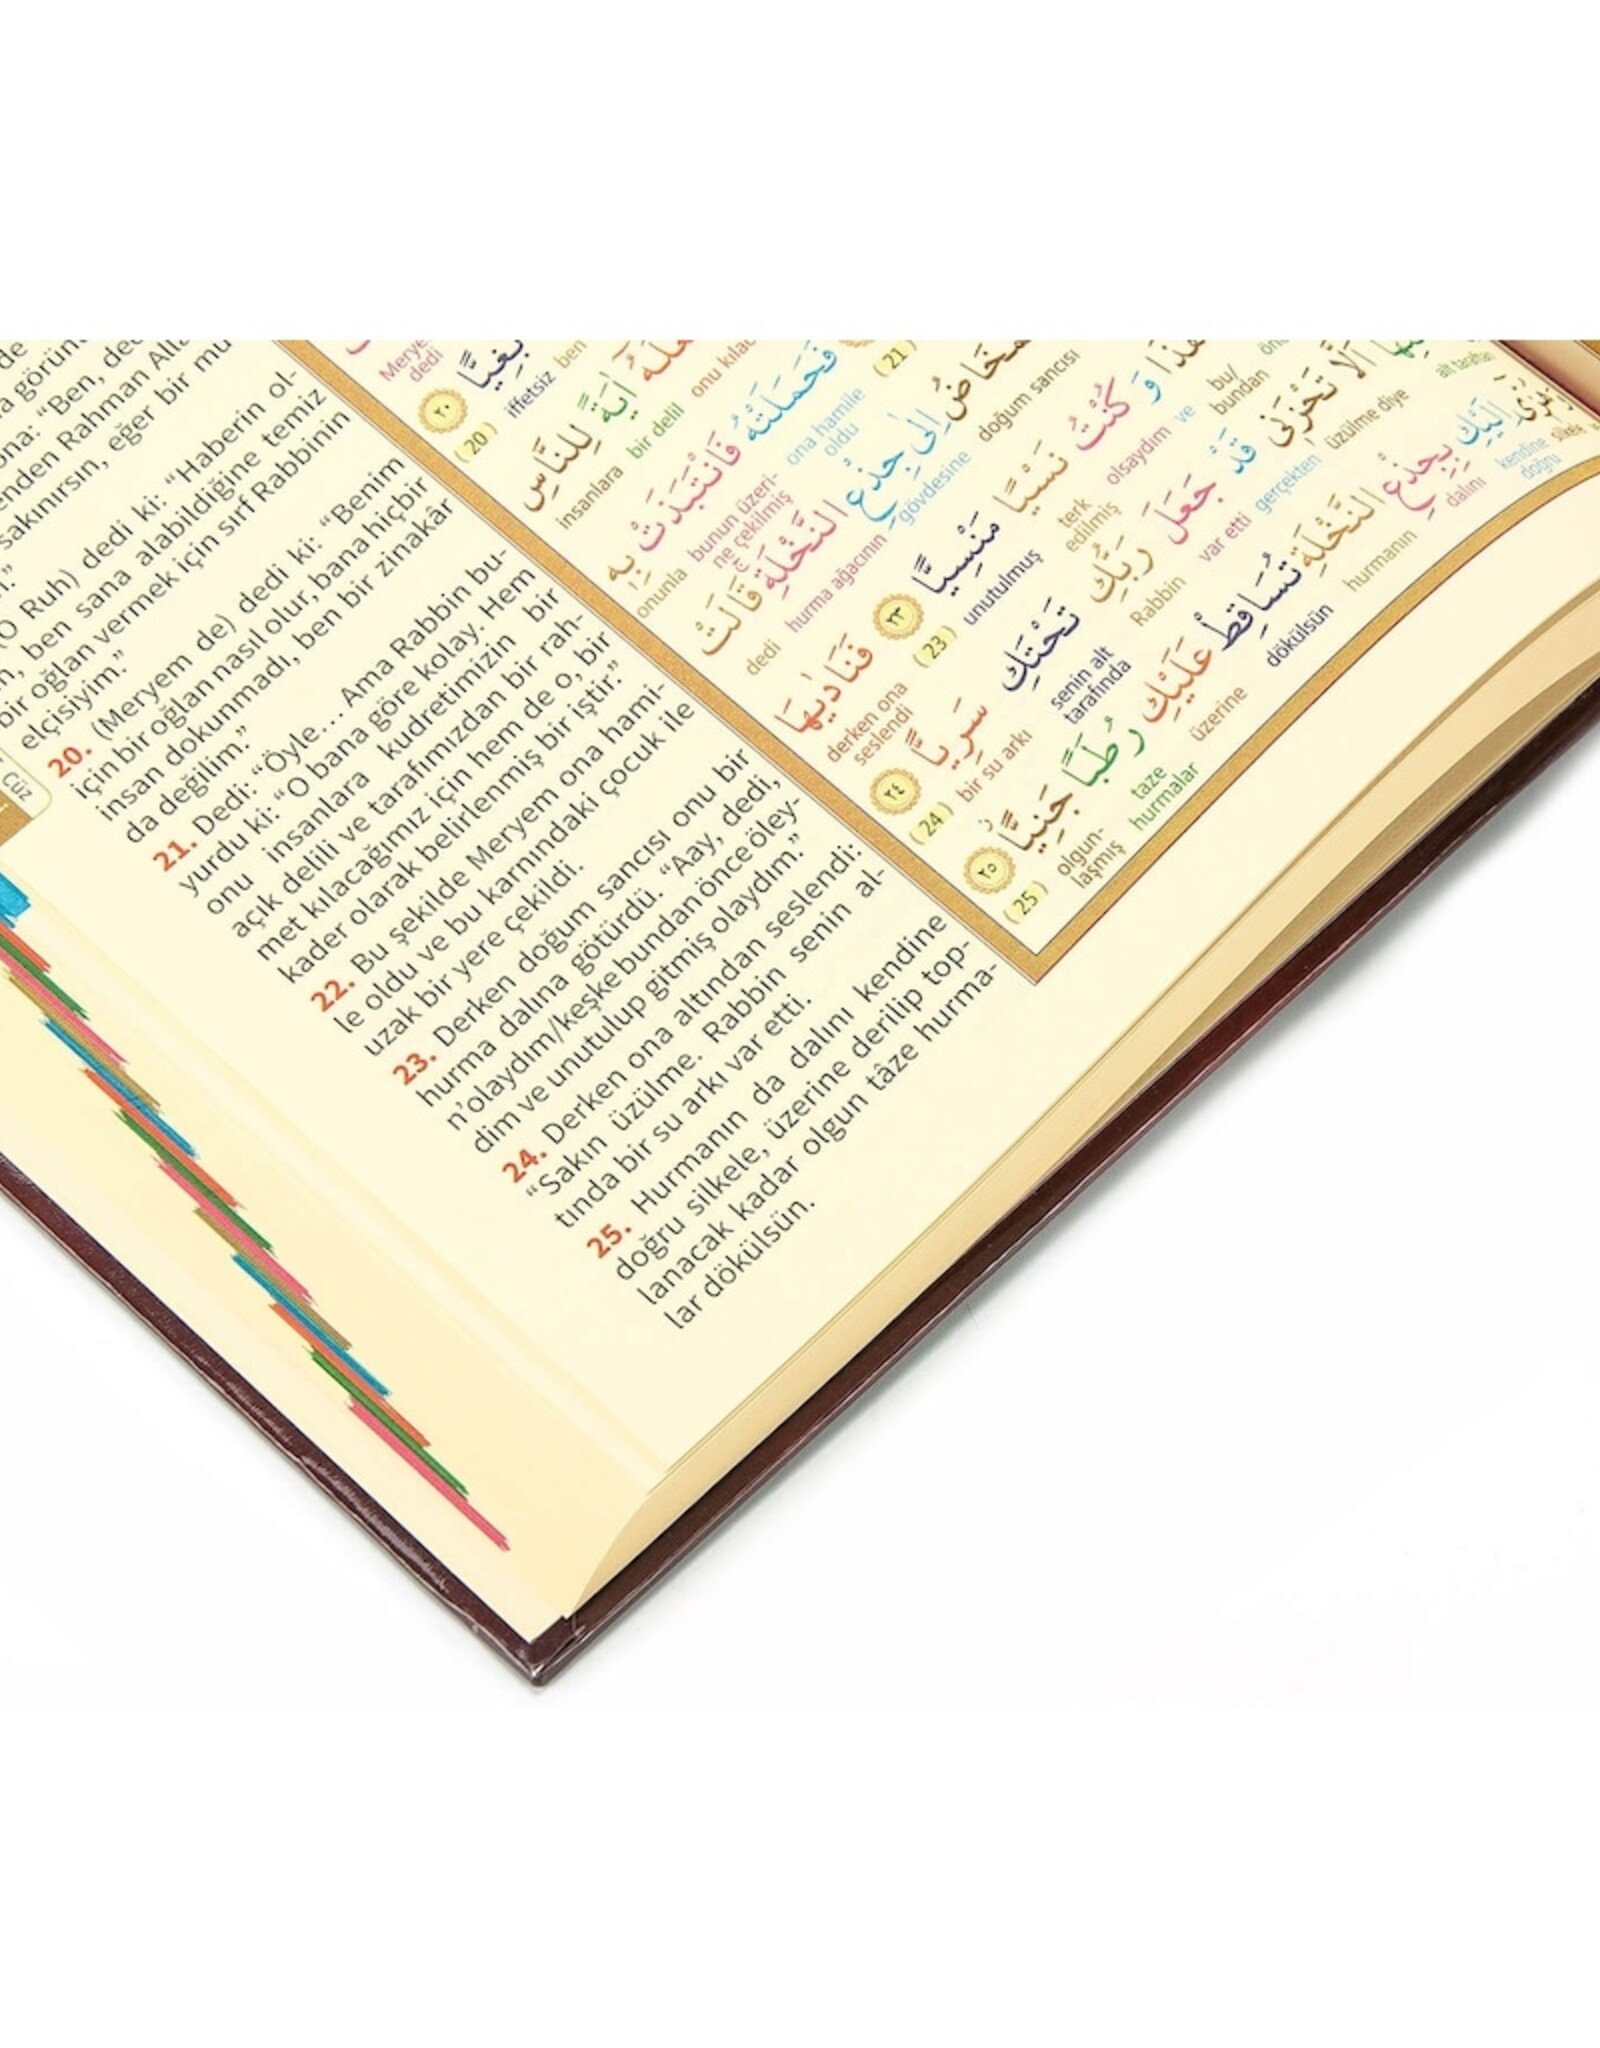 ona: “Ben, dedi
enden Rahman Alla
sakınırsın, eğer bir mu
O Ruh) dedi ki: “Haberin ol-
ben sana alabildiğine temiz
bir oğlan vermek için sırf Rabbinin
elçisiyim.”
20. (Meryem de) dedi ki: “Benim
için bir oğlan nasıl olur, bana hiçbir
insan dokunmadı, ben bir zinakâr
da değilim.”
21. Dedi: “Öyle... Ama Rabbin bu-
yurdu ki: “O bana göre kolay. Hem
onu insanlara kudretimizin bir
açık delili ve tarafımızdan bir rah-
met kılacağımız için hem de o, bir
kader olarak belirlenmiş bir iştir.”
22. Bu şekilde Meryem ona hami-
le oldu ve bu karnındaki çocuk ile
uzak bir yere çekildi.
23. Derken doğum sancısı onu bir
hurma dalına götürdü. “Aay, dedi,
n’olaydım/keşke bundan önce öley-
dim ve unutulup gitmiş olaydım.”
24. Derken ona altından seslendi:
“Sakın üzülme. Rabbin senin al-
tında bir su arkı var etti.
25. Hurmanın da dalını kendine
doğru silkele, üzerine derilip top-
lanacak kadar olgun tâze hurma-
lar dökülsün.
Cüz
Merye
dedi
بَغِيًّا ٢٠
ben
iffetsiz
(20)
اٰيَةً لِلنَّاسِ
onu kılac
bir delil
insanlara
(21)
فَحَمَلَتْهُ فَانْتَبَذَتْ بِهِ
ona hamile
oldu
bunun üzeri-
ne çekilmiş
onunla
اِلٰى جِذْعِ النَّخْلَةِ قَالَتْ
doğum sancısı
gövdesine
hurma ağacının
dedi
وَ كُنْتُ نَسْيًا مَنْسِيًّا ٢٣ فَنَادٰيهَا
bu/
bundan
ve
olsaydım
terk
edilmiş
unutulmuş
(23)
derken ona
seslendi
اَلَّا تَحْزَنٖى قَدْ جَعَلَ رَبُّكِ تَحْتَكِ سَرِيًّا ٢٤
alt taraftan
üzülme diye
gerçekten
var etti
Rabbin
senin alt
tarafında
bir su arkı
(24)
اِلَيْكِ بِجِذْعِ النَّخْلَةِ تُسَاقِطْ عَلَيْكِ رُطَبًا جَنِيًّا ٢٥
silkele
kendine
doğru
dalını
hurmanın
dökülsün
üzerine
taze
hurmalar
olgun-
laşmış
(25)